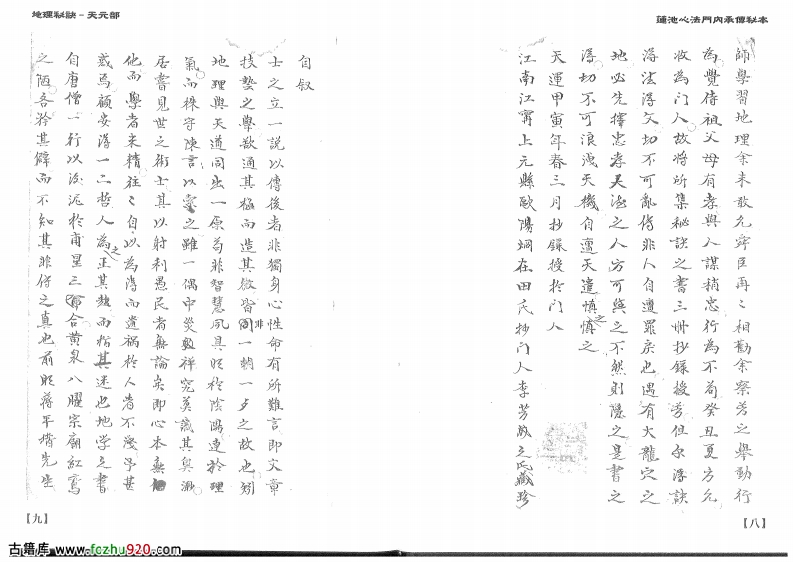 蓮池心法門內承傳秘本
師學習地理余未敢允舜臣再々相勸余察芳之舉動行
為覺侍祖父母有孝與人謀稍忠行為不苟癸丑夏方允
收為門人故將所集秘訣之書三冊抄錄授芳但尔淂訣
淂法淂文切不可亂傳非人自遭罪戾也遇有大龍穴之
地必先擇忠孝之人方可與之不然則隱之是書之
淂切不可浪洩天機自遭天遣慎之慎之
天運甲寅年春三月抄錄授於門人
江南江甯上元縣歐陽坰在田氏抄門人李芳之氏藏珍
【八】
地理秘訣－天元部
自叙
士之立一說以傳後者非獨身心性命有所難言即文章
技藝之學欲通其極而造其微皆非一朝一夕之故也矧
地理與天道同出一原苟非智慧夙具旺於陰陽達於理
氣而株守陳言以之雖一偶中災祥究莫識其奧渺
居嘗見世之術士其以射利愚民者無論矣即心本無
他而學者未精往々自以為淂而遺禍於人者不淺予甚
惑焉顧安淂一二哲人為之正其趨而指其迷也地學之書
自唐僧一行以後泥於甫星三合黃泉八曜宗廟紅鸞
之陋各矜其辟而不知其非仔之真也前明蔣平階先生
【九】
古籍库 www.fczhu920.com